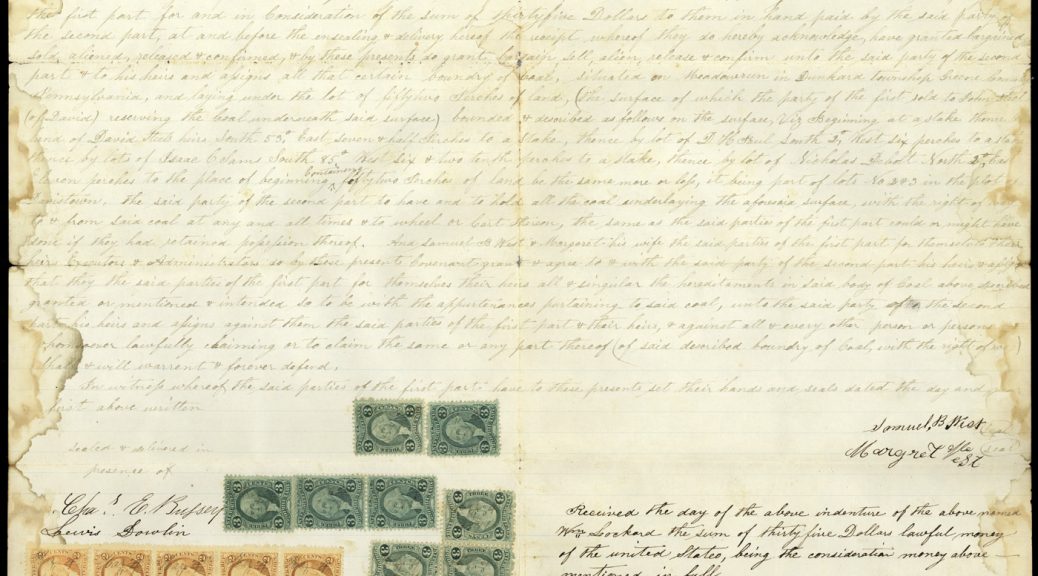 the first part for and in Consideration of the sum of thirtyfive Dollars to them in hand paid by the said party of
the second part, at and before the ensealing & delivery hereof the receipt whereof they do hereby acknowledge, have granted bargained
sold, aliened, released & confirmed, & by these presents do grant, bargain sell, alien, release & confirm unto the said party of the second
part & to his heirs and assigns, all that certain boundry of Coal, situated on Meadowrun in Dunkard township Greene
Pennsylvania, and laying under the lot of fiftytwo Perches of land, (the surface of which the party of the first sold to John
(of David) reserving the Coal underneath said surface) bounded & described as follows on the surface, Viz Beginning at a stake thence by
land of David heirs South 53° East seven & half Perches to a stake, thence by lot of South 2° West six perches to a stake
thence by lots of Isaac South 85° West six & two tenth perches to a stake, thence by lot of Nicholas North 2°
perches to the place of beginning Containing fiftytwo Perches of land be the same more or less, it being part of lots No 2 & 3 in the plot of
the said party of the second part to have and to hold all the coal underlaying the aforesaid surface, with the right of
to & from said coal at any and all times & to wheel or Cart thereon, the same as the said parties of the first part could or might have
done if they had retained possession thereof. And Samuel B West & Margaret his wife the said parties of the first part for themselves their
heirs Executors & Administrators do by these presents Covenant grant & agree to & with the said party of the second part his heirs & assigns
that they the said parties of the first part for themselves their heirs all & singular the hereditaments in said body of Coal above
granted or mentioned & intended so to be with the appertenances pertaining to said coal, unto the said party of the second
part his heirs and assigns against them the said parties of the first part & their heirs, & against all & every other person or persons
whomsoever lawfully claiming or to claim the same or any part thereof (of said described boundry of Coal, with the right of
shall & will warrent & forever defend.
In witness whereof, the said parties of the first part have to these presents set their hands and seals dated the day and
first above written
Samuel, B West
Margret West
(seal
sealed & delivered in
presence of
Chas. E. Bussey
Lewis Dowlin
Received the day of the above indenture of the above named
Wm Lockard the sum of thirty five Dollars lawful money
of the united States, being the consideration money above
mentioned in full